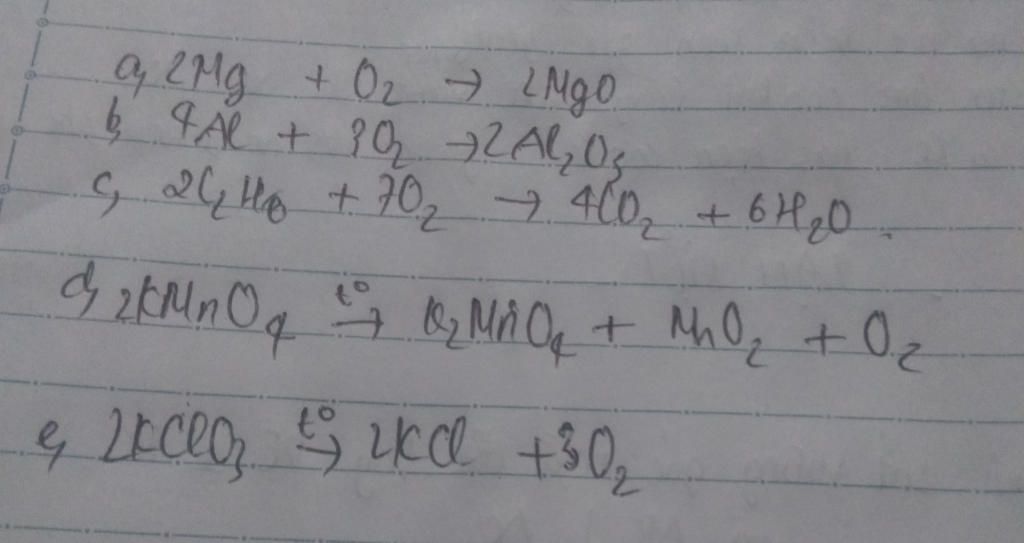 a, 2Mg + O₂ → 2MgO
b, 4Al + 3O₂ → 2Al₂O₃
c, 2C₂H₆ + 7O₂ → 4CO₂ + 6H₂O.
d, 2KMnO₄ t° → K₂MnO₄ + MnO₂ + O₂
e, 2KClO₃ t° → 2KCl + 3O₂